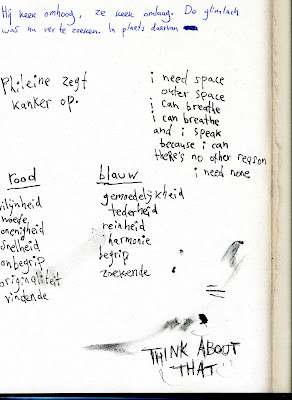 Hij keek omhoog, ze keek omlaag. De glimlach
was nu ver te zoeken. In plaats daarvan
Phileine zegt
kanker op.
i need space
outer space
i can breathe
i can breathe
and i speak
because i can
there's no other reason
i need none
rood
vilijnheid
woede
onenigheid
snelheid
onbegrip
originaliteit
vindende
blauw
gemoedelijkheid
tederheid
reinheid
harmonie
begrip
zoekende
THINK ABOUT
THAT